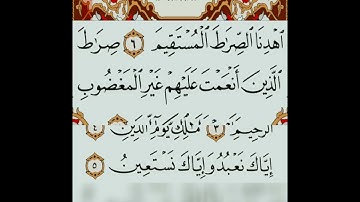 ٱهْدِنَا ٱلصِّرَٰطَ ٱلْمُسْتَقِيمَ ٦ صِرَٰطَ
ٱلَّذِينَ أَنْعَمْتَ عَلَيْهِمْ غَيْرِ ٱلْمَغْضُوبِ
ٱلرَّحِيمِ ٣ مَٰلِكِ يَوْمِ ٱلدِّينِ ٤
إِيَّاكَ نَعْبُدُ وَإِيَّاكَ نَسْتَعِينُ ٥